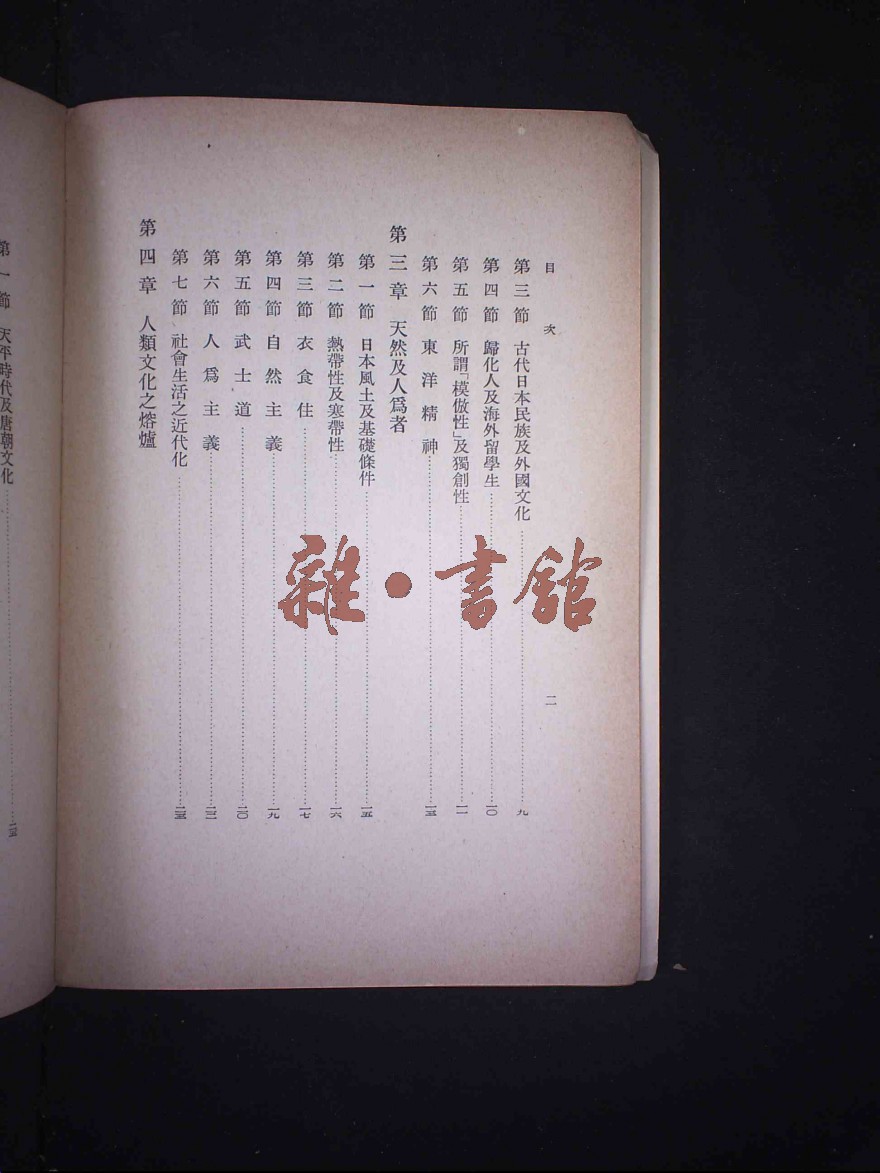 目次
二
第三節 古代日本民族及外國文化……九
第四節 歸化人及海外留學生……一〇
第五節 所謂「模倣性」及獨創性……一一
第六節 東洋精神……一五
第三章 天然及人爲者
第一節 日本風土及基礎條件……一五
第二節 熱帶性及寒帶性……一六
第三節 衣食住……一七
第四節 自然主義……一九
第五節 武士道……二〇
第六節 人爲主義
第七節 社會生活之近代化
第四章 人類文化之熔爐
第一節 天平時代及唐朝文化
雜・書館